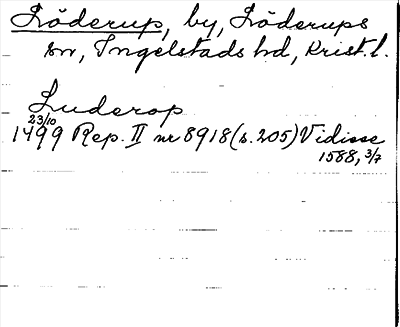 Löderup, by, Löderups
sn, Ingelstads hd, Krist. l.
Luderop
23/10
1499 Rep. II nr 8918 (s. 205) Vidisse
1588, 3/7